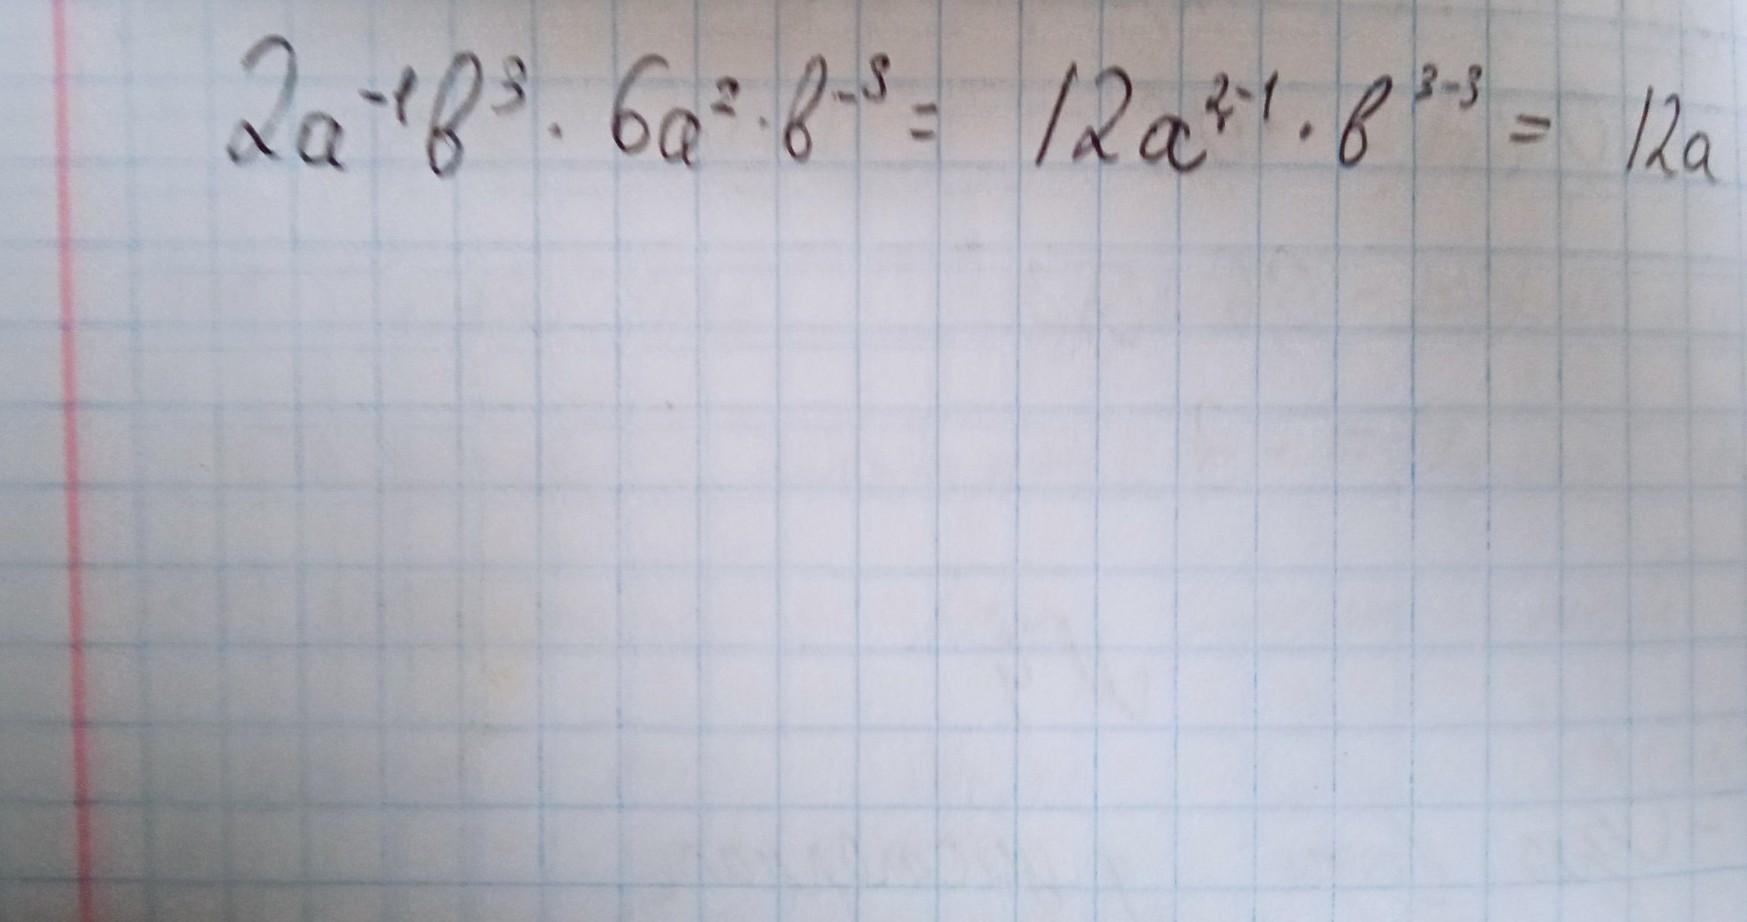 2a⁻¹b³ · 6a² · b⁻³ = 12a²⁻¹ · b³⁻³ = 12a